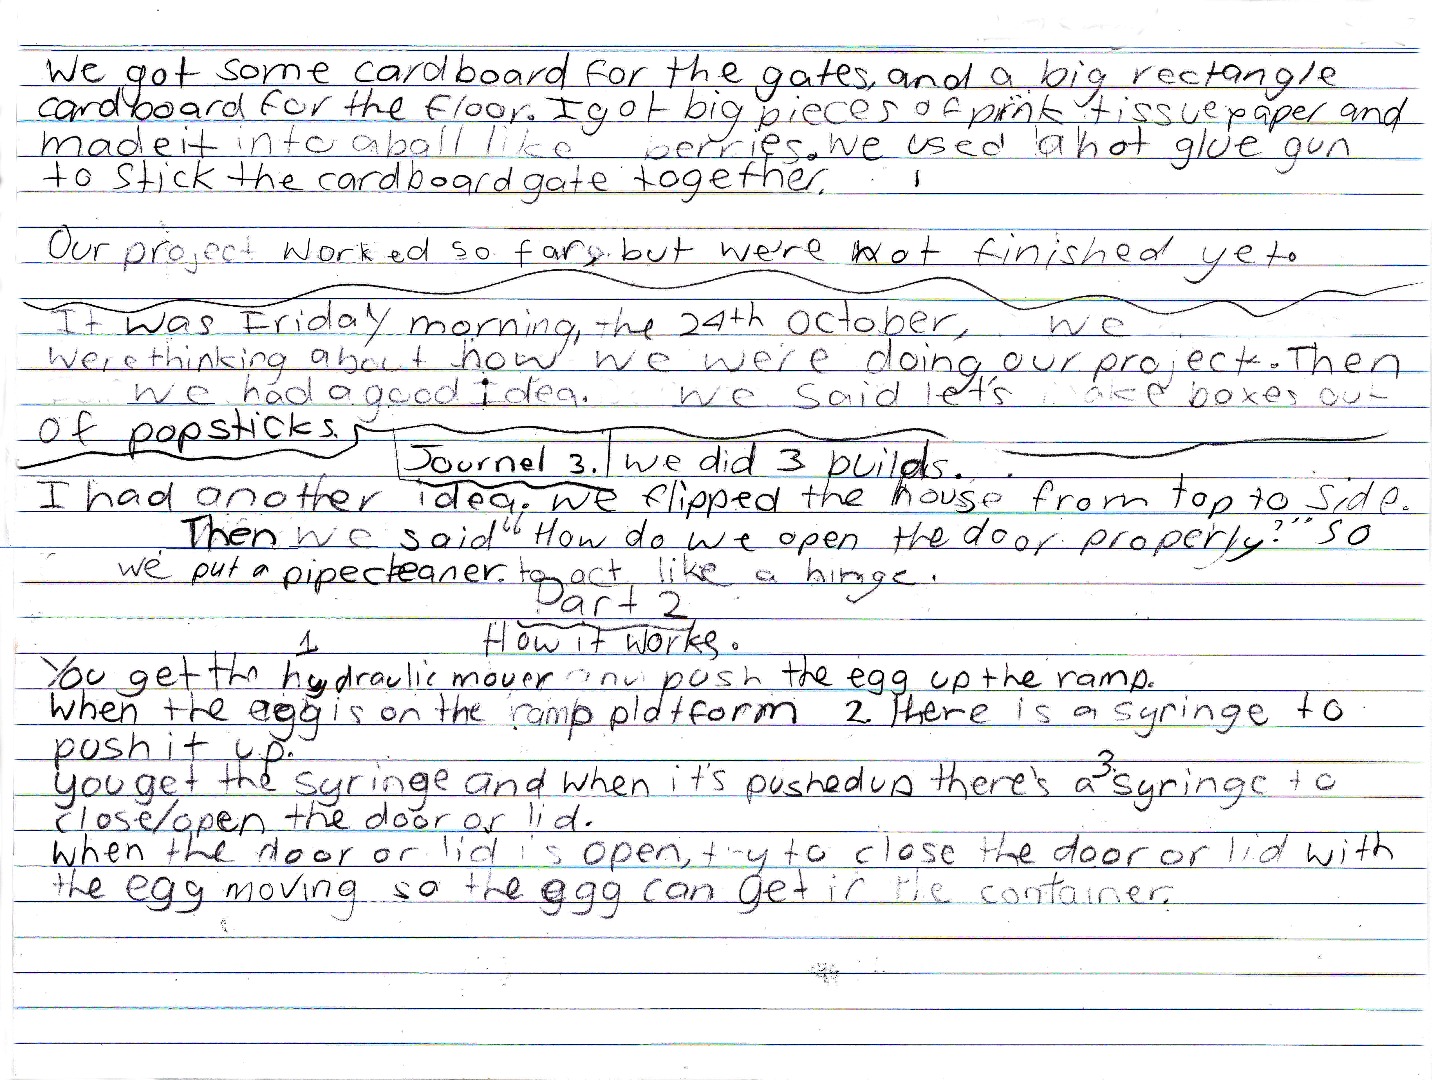 We got some cardboard for the gates, and a big rectangle
cardboard for the floor. I got big pieces of pink tissue paper and
made it into a ball like berries. We used a hot glue gun
to stick the cardboard gate together.
Our project worked so far, but were not finished yet.
It was Friday morning, the 24th October, we
were thinking about how we were doing our project. Then
we had a good idea. We said let's make boxes out
of popsticks.
Journel 3. we did 3 builds.
I had another idea. We flipped the house from top to side.
Then we said "How do we open the door properly?" So
we put a pipecleaner to act like a hinge.
Part 2
How it works.
1
You get the hydraulic mover and push the egg up the ramp.
When the egg is on the ramp platform 2 there is a syringe to
push it up.
you get the syringe and when it's pushed up there's a 3 syringe to
close/open the door or lid.
When the door or lid is open, try to close the door or lid with
the egg moving so the egg can get in the container.